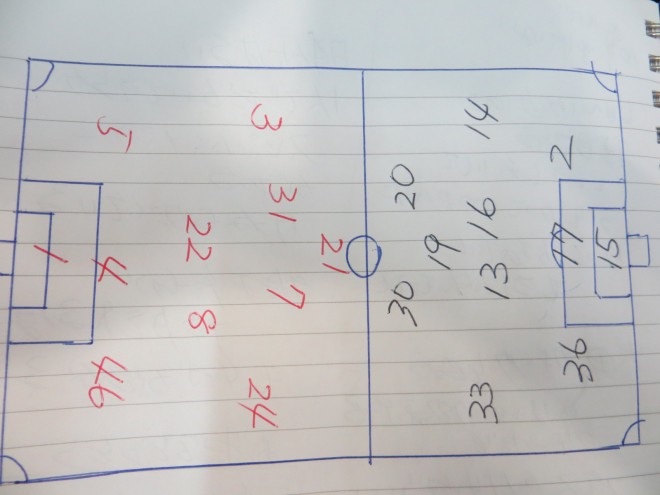 3
14
5
2
20
31
16
22
21
19
15
1
4
13
7
30
8
36
46
24
33